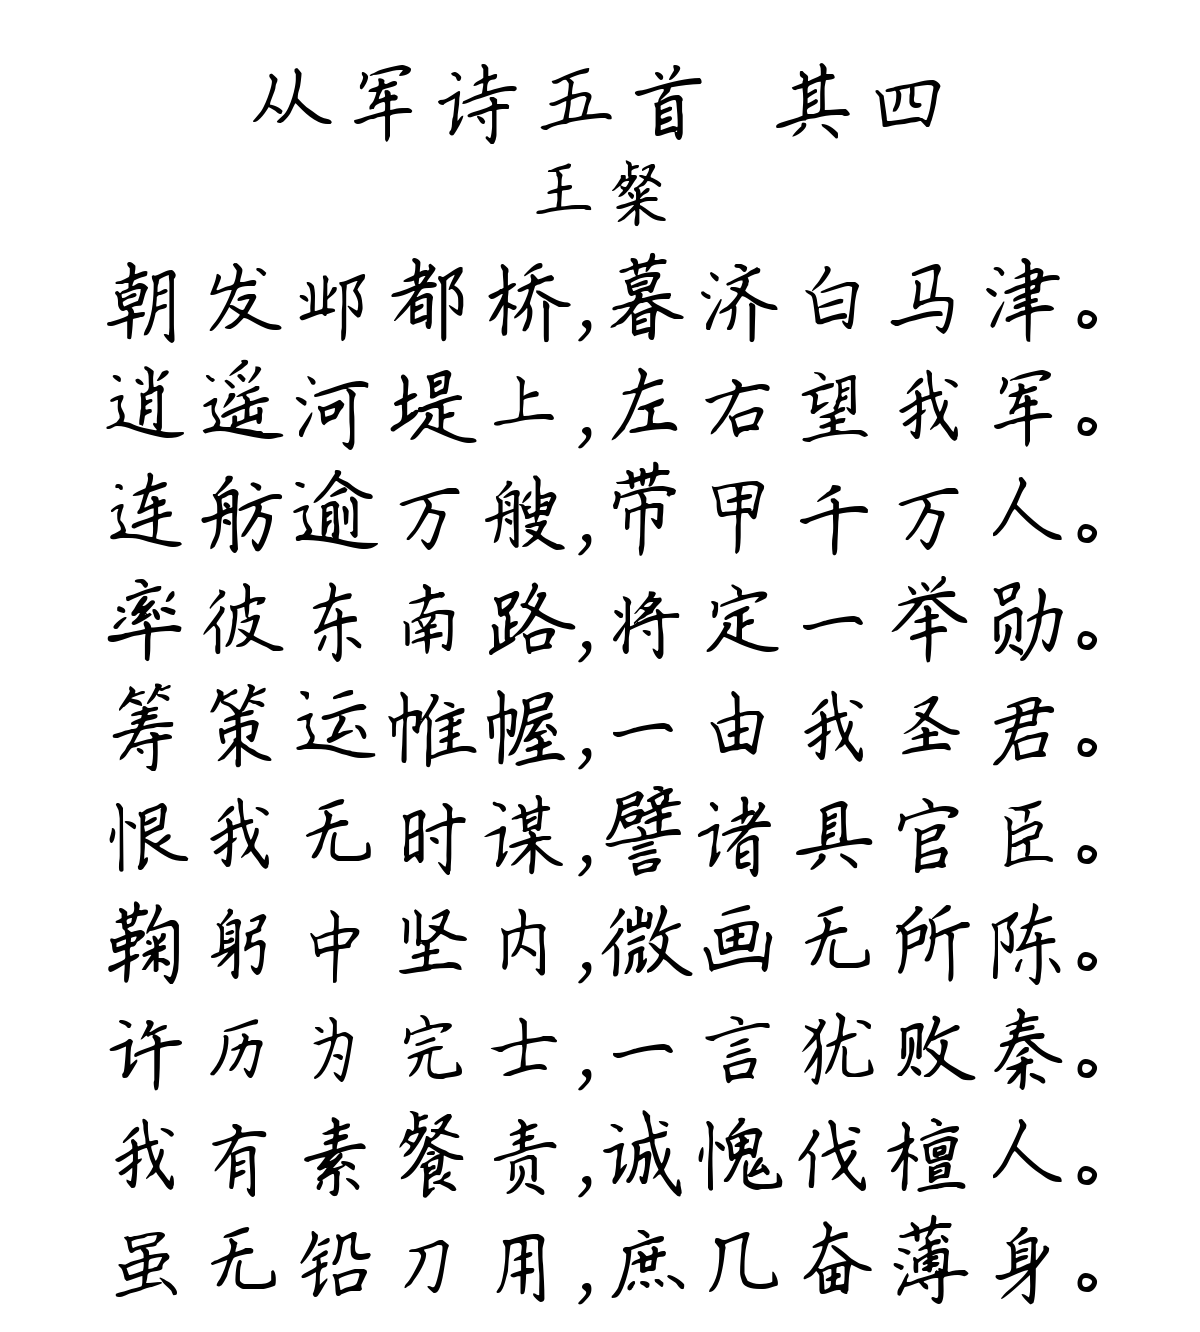 从军诗五首 其四
王粲
朝发邺都桥,暮济白马津。
逍遥河堤上,左右望我军。
连舫逾万艘,带甲千万人。
率彼东南路,将定一举勋。
筹策运帷幄,一由我圣君。
恨我无时谋,譬诸具官臣。
鞠躬中坚内,微画无所陈。
许历为完士,一言犹败秦。
我有素餐责,诚愧伐檀人。
虽无铅刀用,庶几奋薄身。